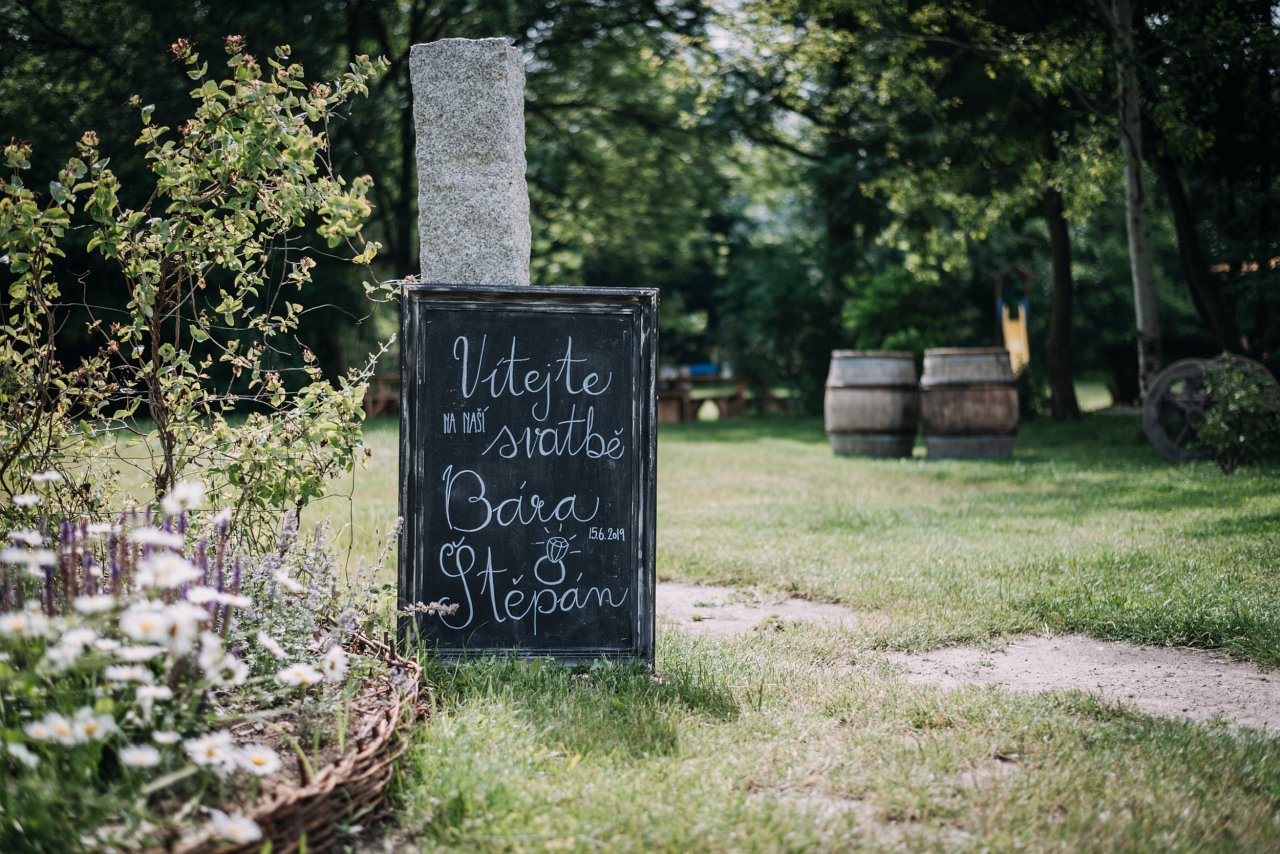 Vítejte
NA NAŠÍ svatbě
Bára
15.6.2019
Štěpán